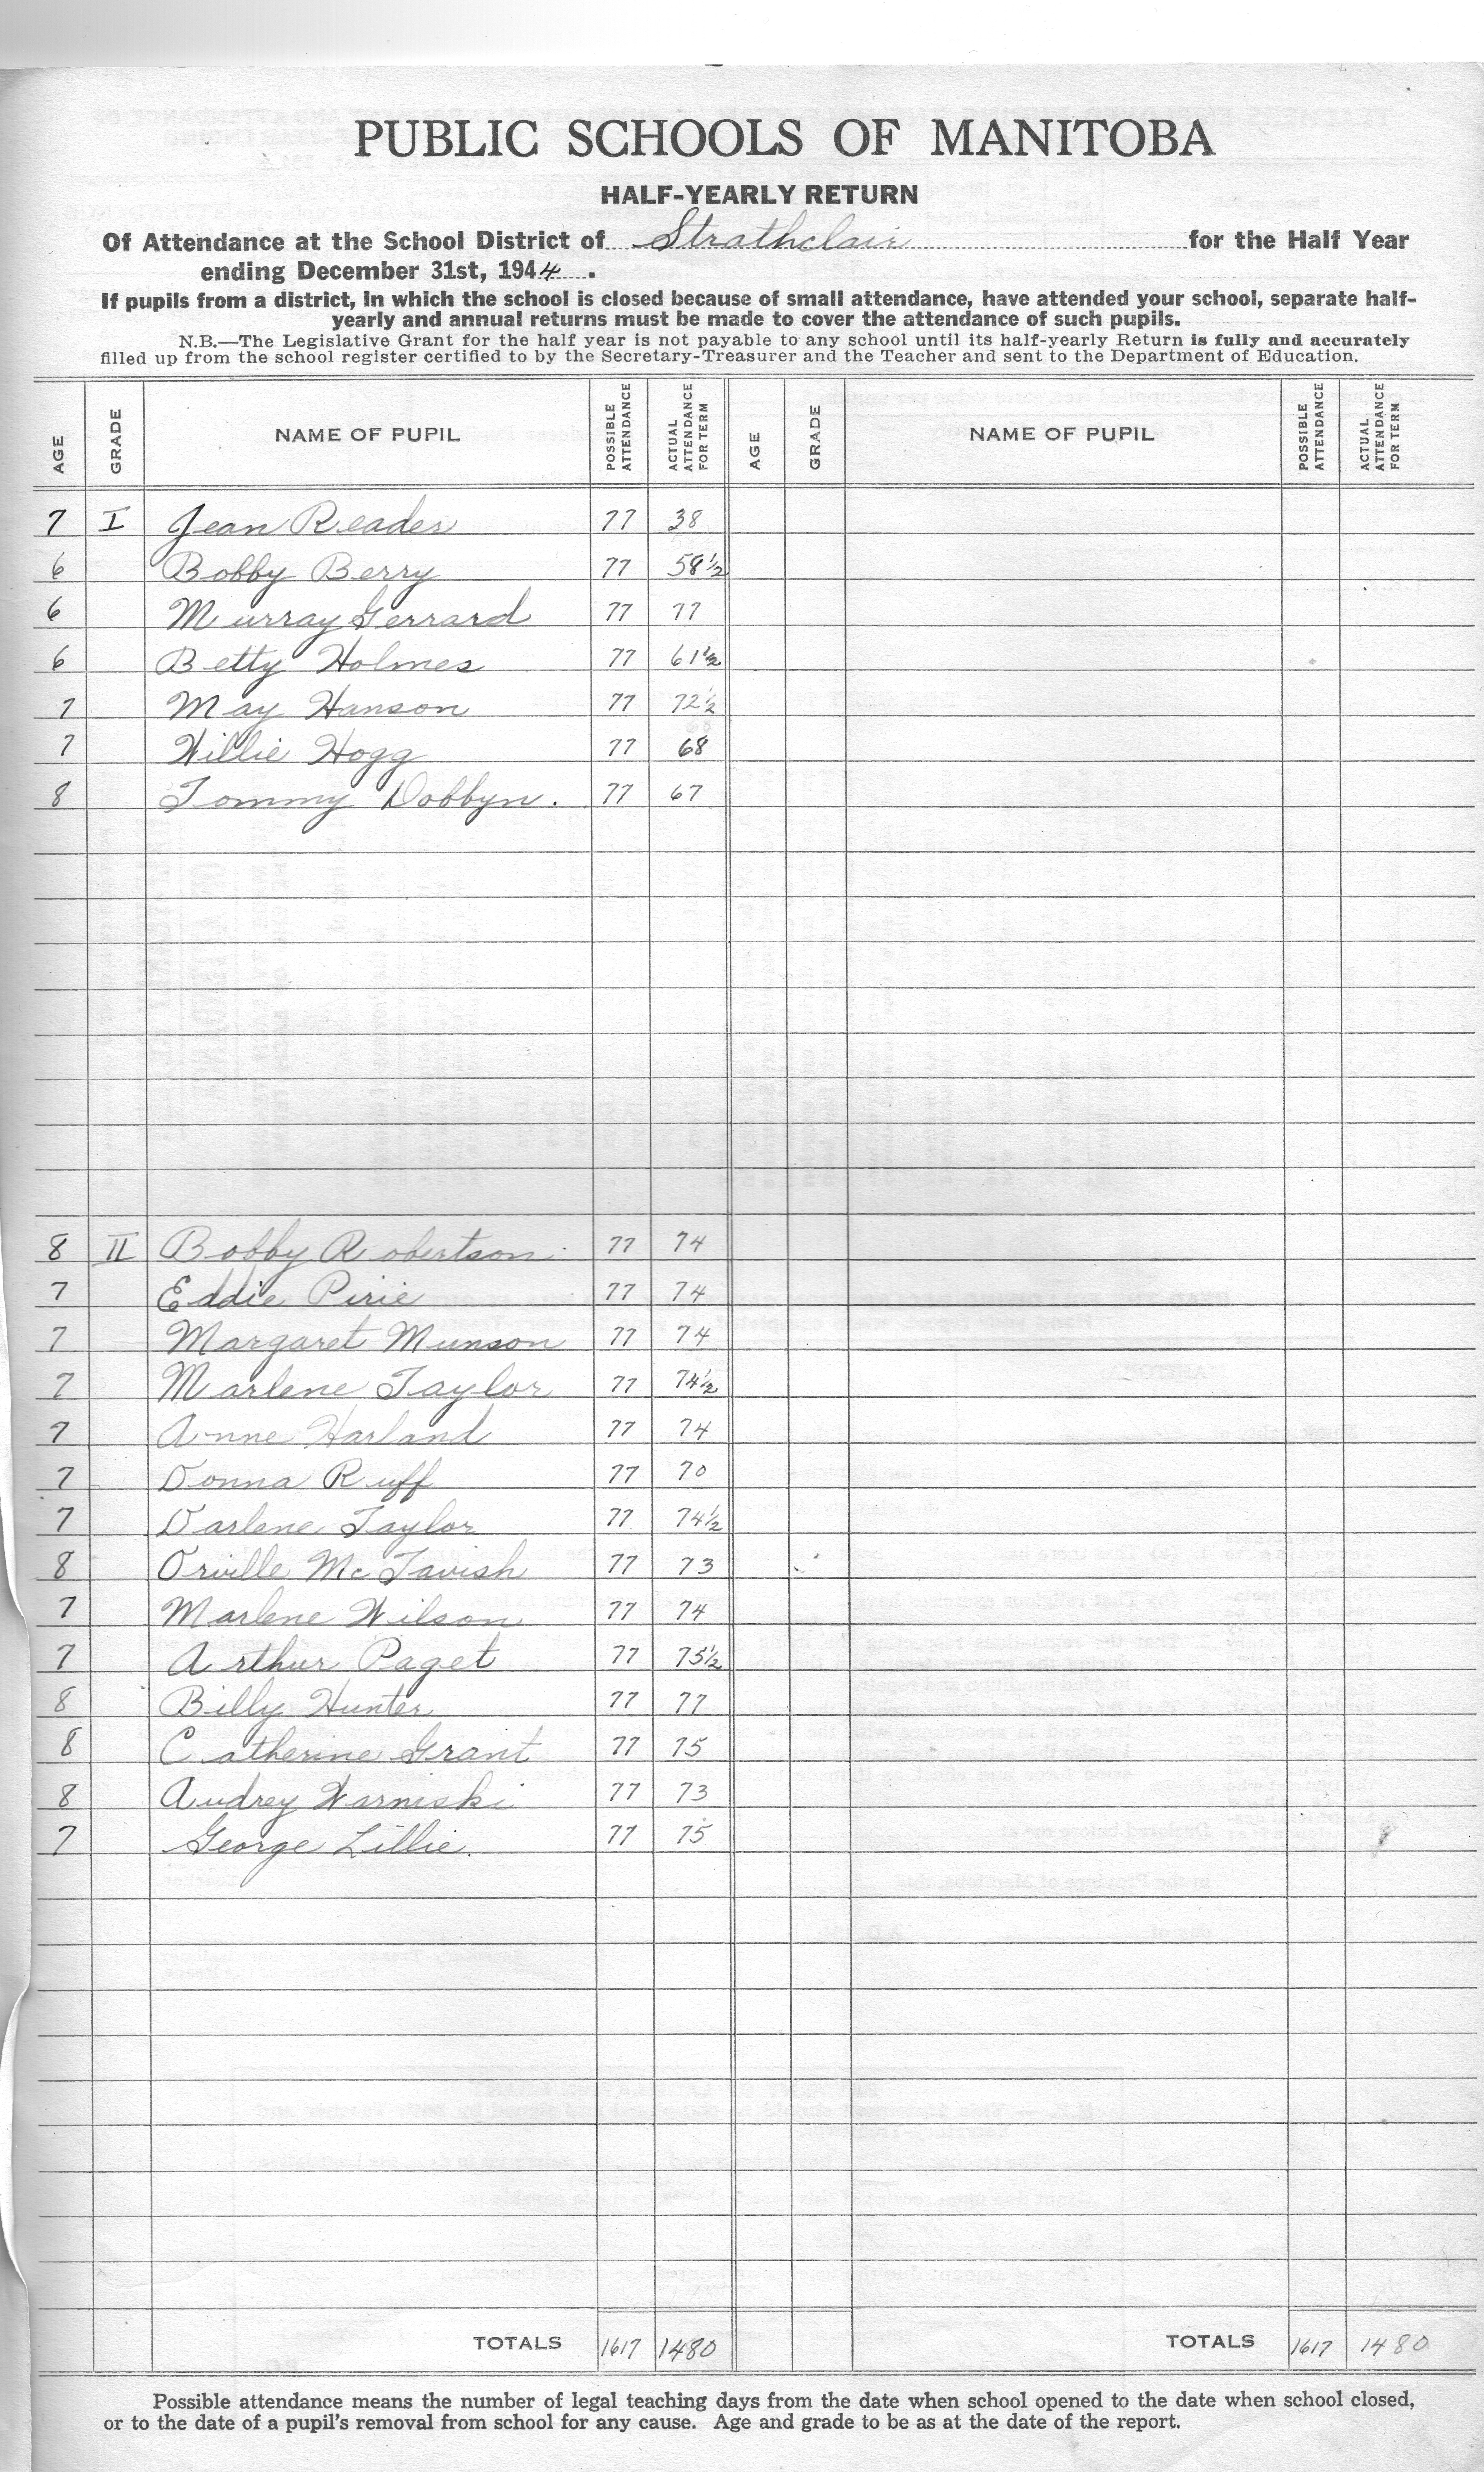 PUBLIC SCHOOLS OF MANITOBA
HALF-YEARLY RETURN
Of Attendance at the School District of Strathclair for the Half Year
ending December 31st, 1944.
If pupils from a district, in which the school is closed because of small attendance, have attended your school, separate half-
yearly and annual returns must be made to cover the attendance of such pupils.
N.B.—The Legislative Grant for the half year is not payable to any school until its half-yearly Return is fully and accurately
filled up from the school register certified to by the Secretary-Treasurer and the Teacher and sent to the Department of Education.
AGE GRADE NAME OF PUPIL POSSIBLE ATTENDANCE ACTUAL ATTENDANCE FOR TERM AGE GRADE NAME OF PUPIL POSSIBLE ATTENDANCE ACTUAL ATTENDANCE FOR TERM
7 I Jean Reader 77 38
6 Bobby Berry 77 58½
6 Murray Gerrard 77 77
6 Betty Holmes 77 61½
7 May Hanson 77 72½
7 Willie Hogg 77 68
8 Tommy Dobbyn. 77 67
8 II Bobby Robertson 77 74
7 Eddie Pirie 77 74
7 Margaret Munson 77 74
7 Marlene Taylor 77 74½
7 Anne Harland 77 74
7 Donna Ruff 77 70
7 Darlene Taylor 77 74½
8 Orville McTavish 77 73
7 Marlene Wilson 77 74
7 Arthur Paget 77 75½
8 Billy Hunter 77 77
8 Catherine Grant 77 75
8 Audrey Warniski 77 73
7 George Lillie. 77 75
TOTALS 1617 1480 TOTALS 1617 1480
Possible attendance means the number of legal teaching days from the date when school opened to the date when school closed,
or to the date of a pupil's removal from school for any cause. Age and grade to be as at the date of the report.